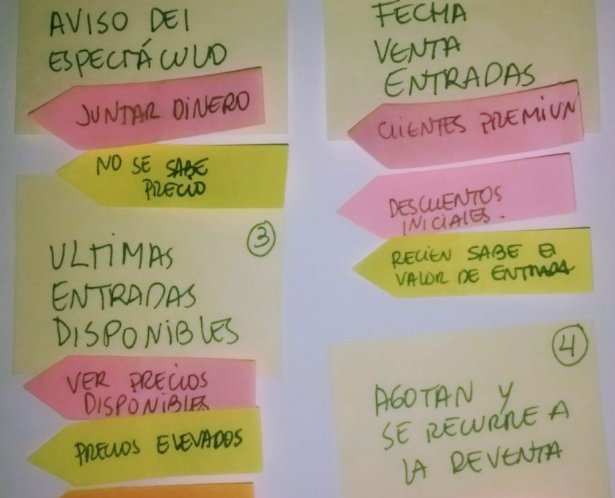 AVISO DEL
ESPECTÁCULO
JUNTAR DINERO
NO SE SABE
PRECIO
FECHA
VENTA
ENTRADAS
CLIENTES PREMIUN
DESCUENTOS
INICIALES.
RECIÉN SABE EL
VALOR DE ENTRADA
3
ULTIMAS
ENTRADAS
DISPONIBLES
VER PRECIOS
DISPONIBLES
PRECIOS ELEVADOS
4
AGOTAN Y
SE RECURRE A
LA REVENTA